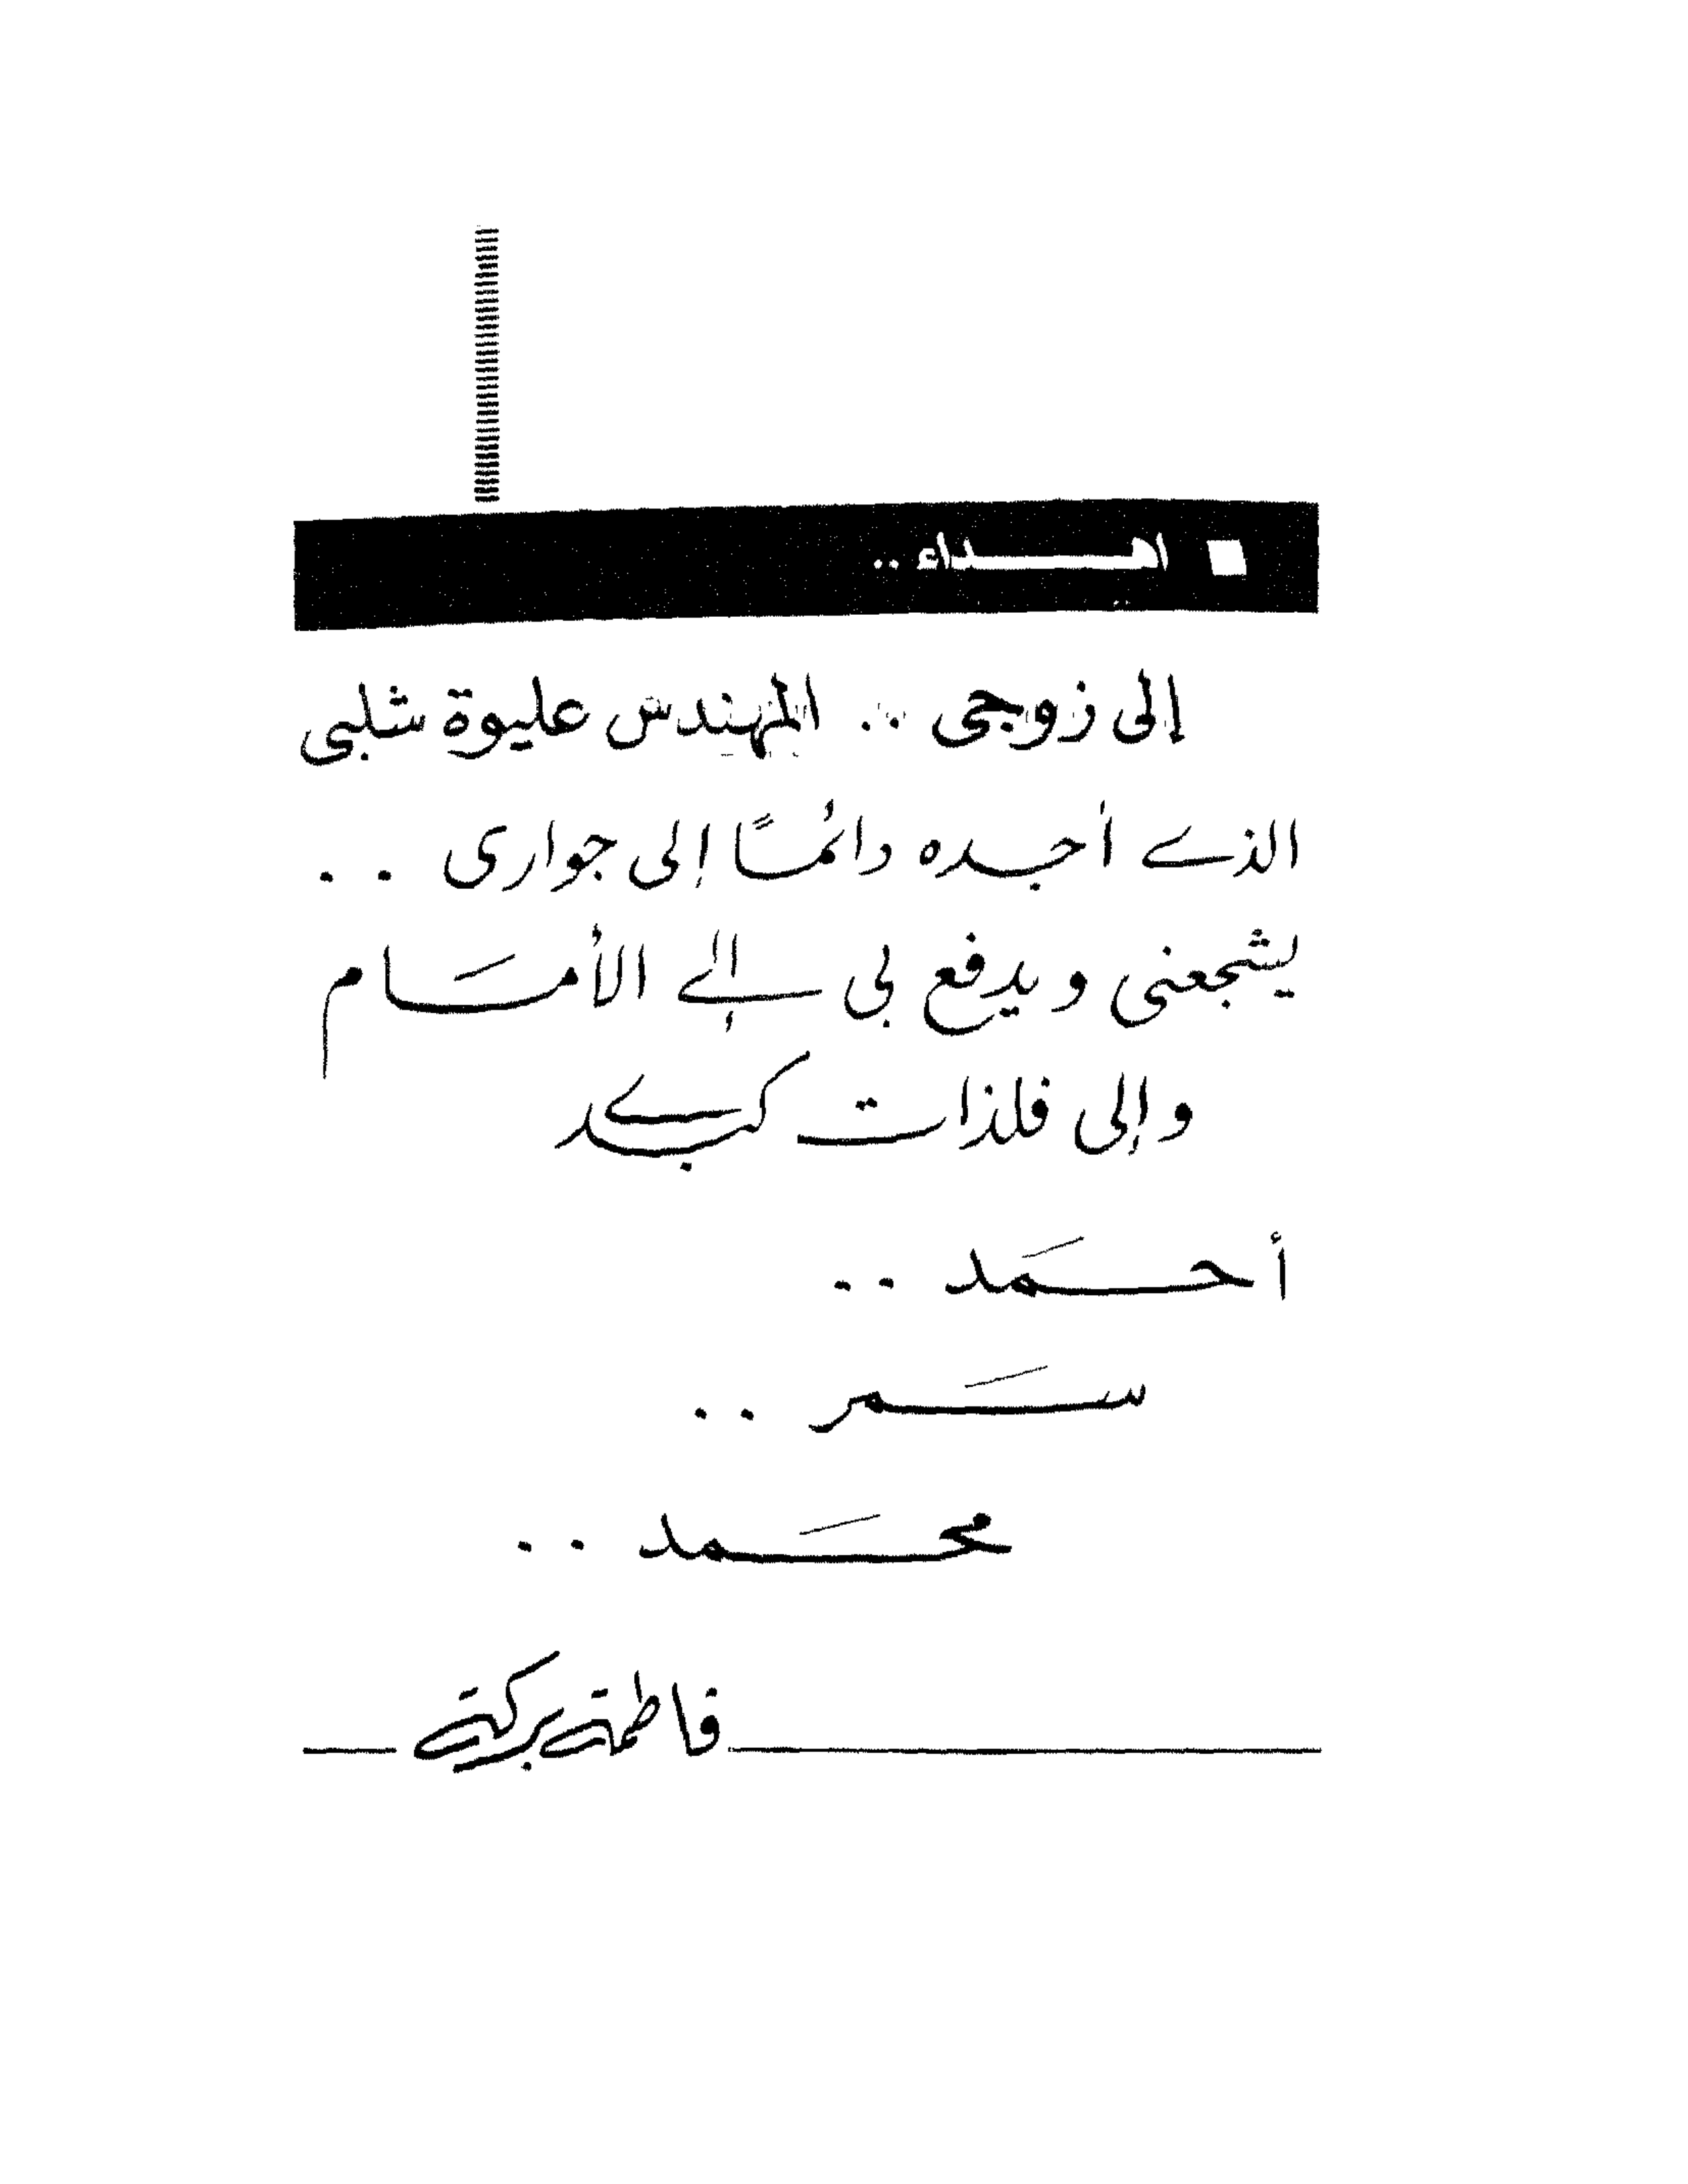 ■ اهـــــــداء ..
إلى زوجى .. المهندس عليوة شلبى
الذى أجـده دائمًا إلى جوارى ..
يشجعنى ويدفع بى إلى الأمـَـام
وإلى فلذات كبدى
أحـــمَد ..
ســـَـمر ..
محـــَـمد ..
فاطمة بركة